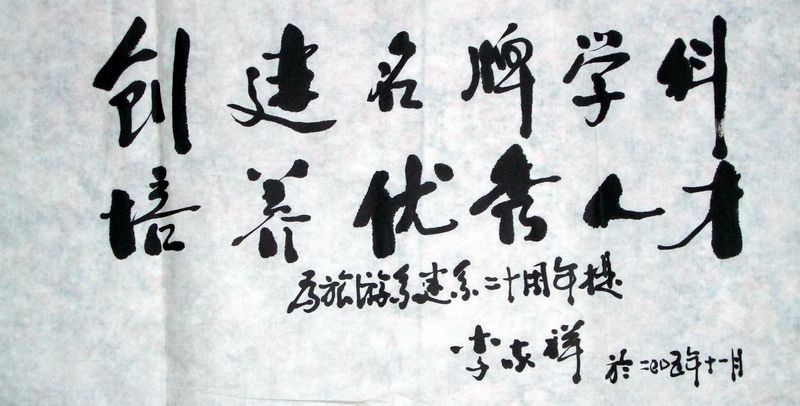 创建名牌学科
培养优秀人才
为旅游系建系二十周年提
李家祥 於二〇〇五年十一月